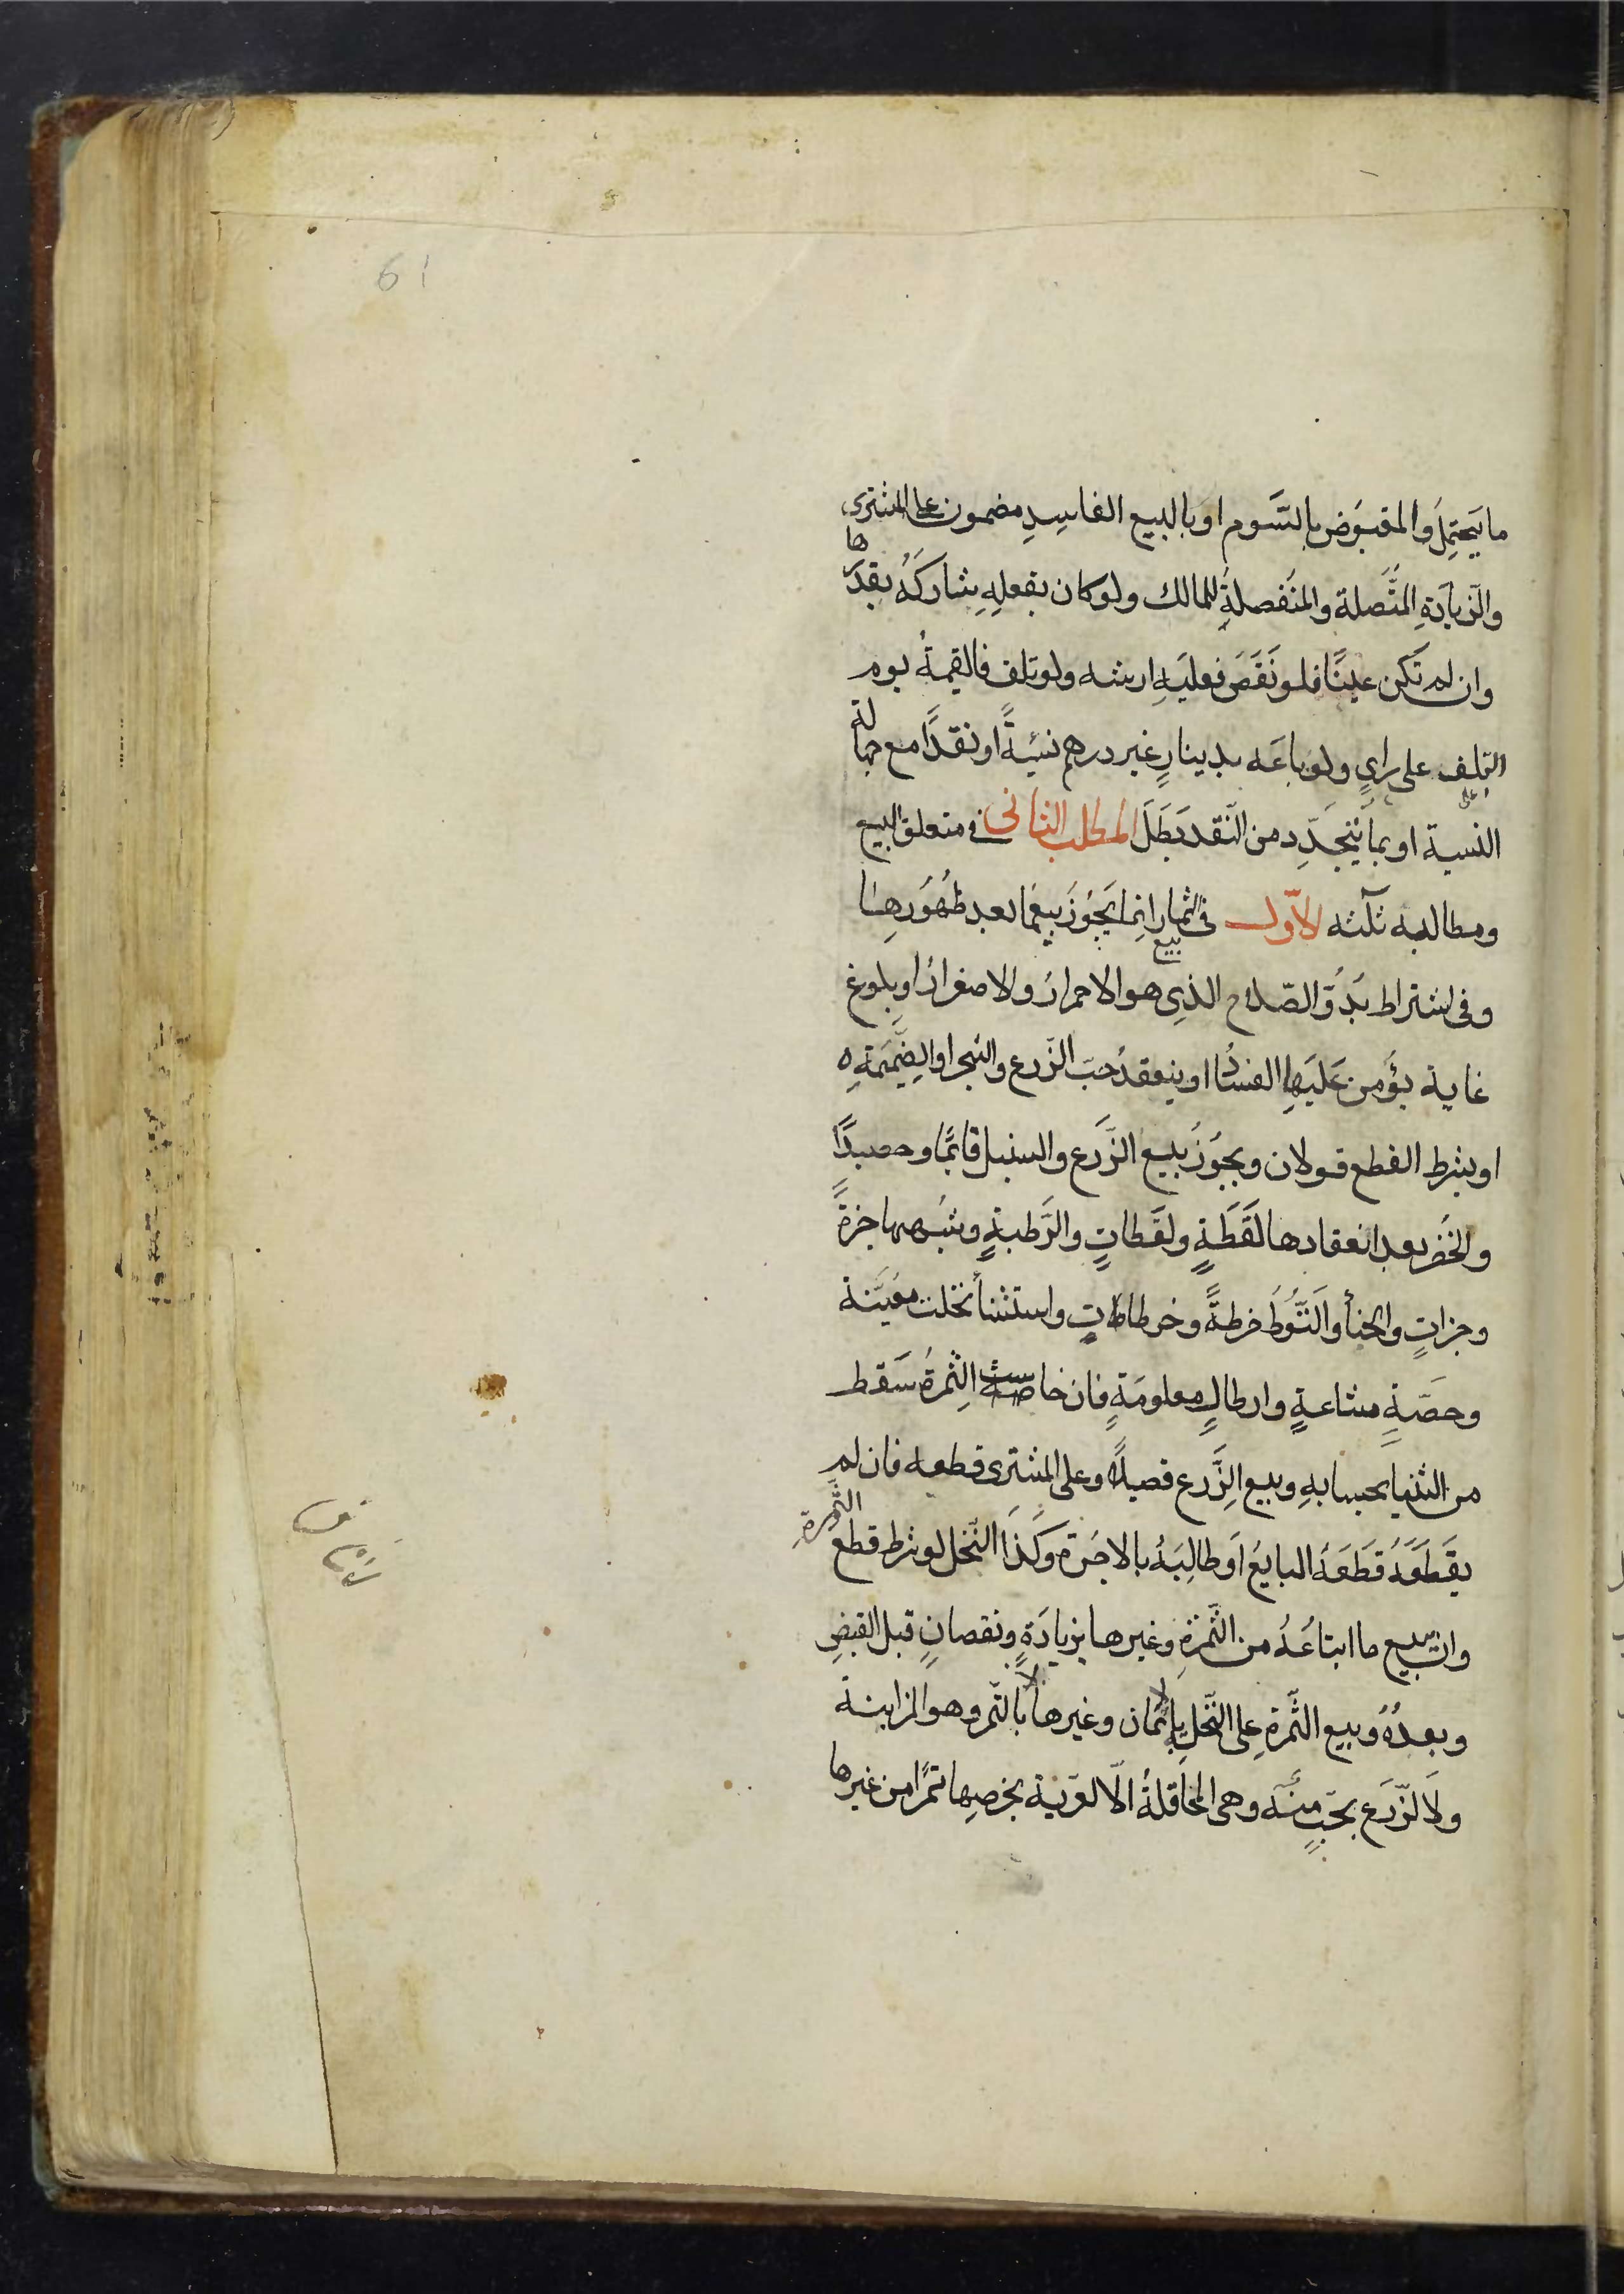 61
ما يَحتمِلُ والمقبوَض بالسَّوم او بالبيع الفاسِدِ مضمون على المشترى
والزيادَةِ المتَّصلة والمنفَصلةِ للمالك ولو كان بفعلِهِ شاركَهُ بقدَرها
وان لم تَكن عينًا فلو نَقَصَ فعليَهِ ارشه ولو تلف فالقيمةُ يوم
التلف على رايٍ ولو باعَه بدينارٍ غير درهم نسيَةً او نقدًا مع جهالة
النسية او بما يتجدِّد من النَّقد بَطَلَ المطلب الثانى فى متعلق البيع
ومطالبه ثلثه الاوّل فى بيع الثمار انما يَجُوزَ بيعَها بعد ظهُورَها
وفى اشتراط بُدوِّ الصّلاح الذِى هو الاحمرارُ والاصفرارُ او بلوغ
غاية يؤمن عَليَهِا الفسادُ او ينعقدُ حبّ الزّرع والشجر او الضميَمَةِ
او بشرط القطع قولان ويجوزُ بيع الزَّرع والسنبل قائمًا وحصيدًا
والخُضر بعد انعقادها لَقَطَةٍ ولقَطاتٍ والرَّطبةٍ وشبَهها جزةً
وجزاتٍ والحنأ والتُّوط خرطةً وخرطاطاتٍ واستثنأ نخلت معيَّنة
وحصَّةٍ مشاعةٍ وارطالٍ معلومَةٍ فان خاست الثِمرةُ سَقط
من الثنيا بحسابهِ وبيع الزَّرع قصيلاً وعلى المشترى قطعه فان لم
يقَطَعَهُ قَطَعَهُ البايعُ اوَ طالبَهُ بالاجرَة وكَذَا النّخل لو شرط قطع الثمرة
وان يبيع ما ابتاعُهُ من الثَّمرَةِ وغيرها بزيادَةٍ ونقصانٍ قبل القبضِ
وبعدُهُ وبيع الثَّمرةِ على النَّخلِ بالاثمان وغيرها لا بالتَّمر وهو المزابنة
ولا الزّرَع بحَبٍ منَّه وهى المحاقلةُ الّا العَريّة بخرصِها تمرًا من غيرها